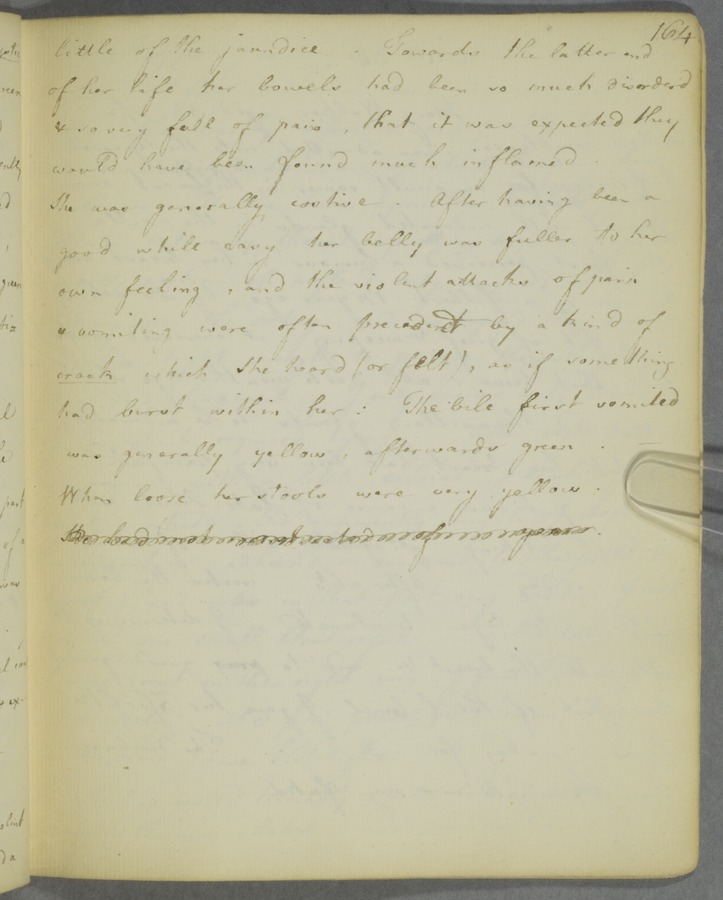 164
little of the jaundice. Towards the latter end
of her life her bowels had been so much disorderd
& so very full of pain, that it was expected they
would have been found much inflamed.
She was generally costive. After having been a
good while easy her belly was fuller to her
own feeling, and the violent attacks of pain
& vomiting were often preceded by a kind of
crack which she heard (or felt), as if something
had burst within her: The bile first vomited
was generally yellow, afterwards green.
When loose her stools were very yellow.